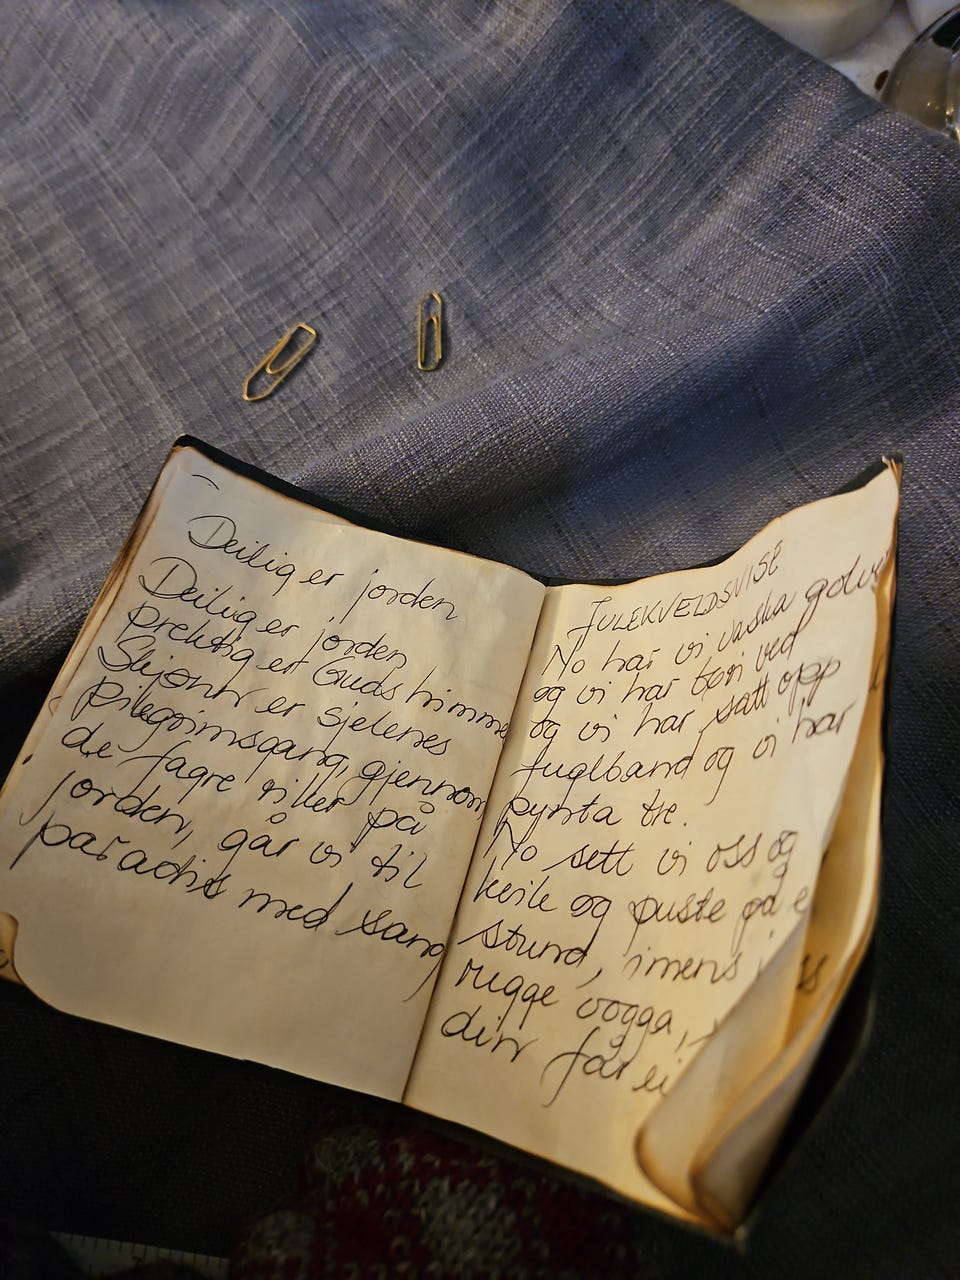 Deilig er jorden
Deilig er jorden
prektig er Guds himme
Skjønn er sjelenes
pilegrimsgang, gjennom
de fagre riker på
jorden, går vi til
paradis med sang
JULEKVELDSVISE
No har vi vaska golve
og vi har børi ved
og vi har satt opp
fuglband og vi har
pynta tre.
No sett vi oss og
kvile og puste på e
stund, imens
rugge vogga,
din får ei